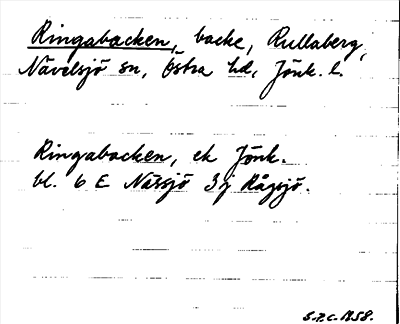 Ringabacken, backe, Rullaberg,
Nävelsjö sn, Östra hd, Jönk. l.
Ringabacken, ek Jönk.
bl. 6 E Nässjö 3j Rågsjö.
S.P.C. 1958.